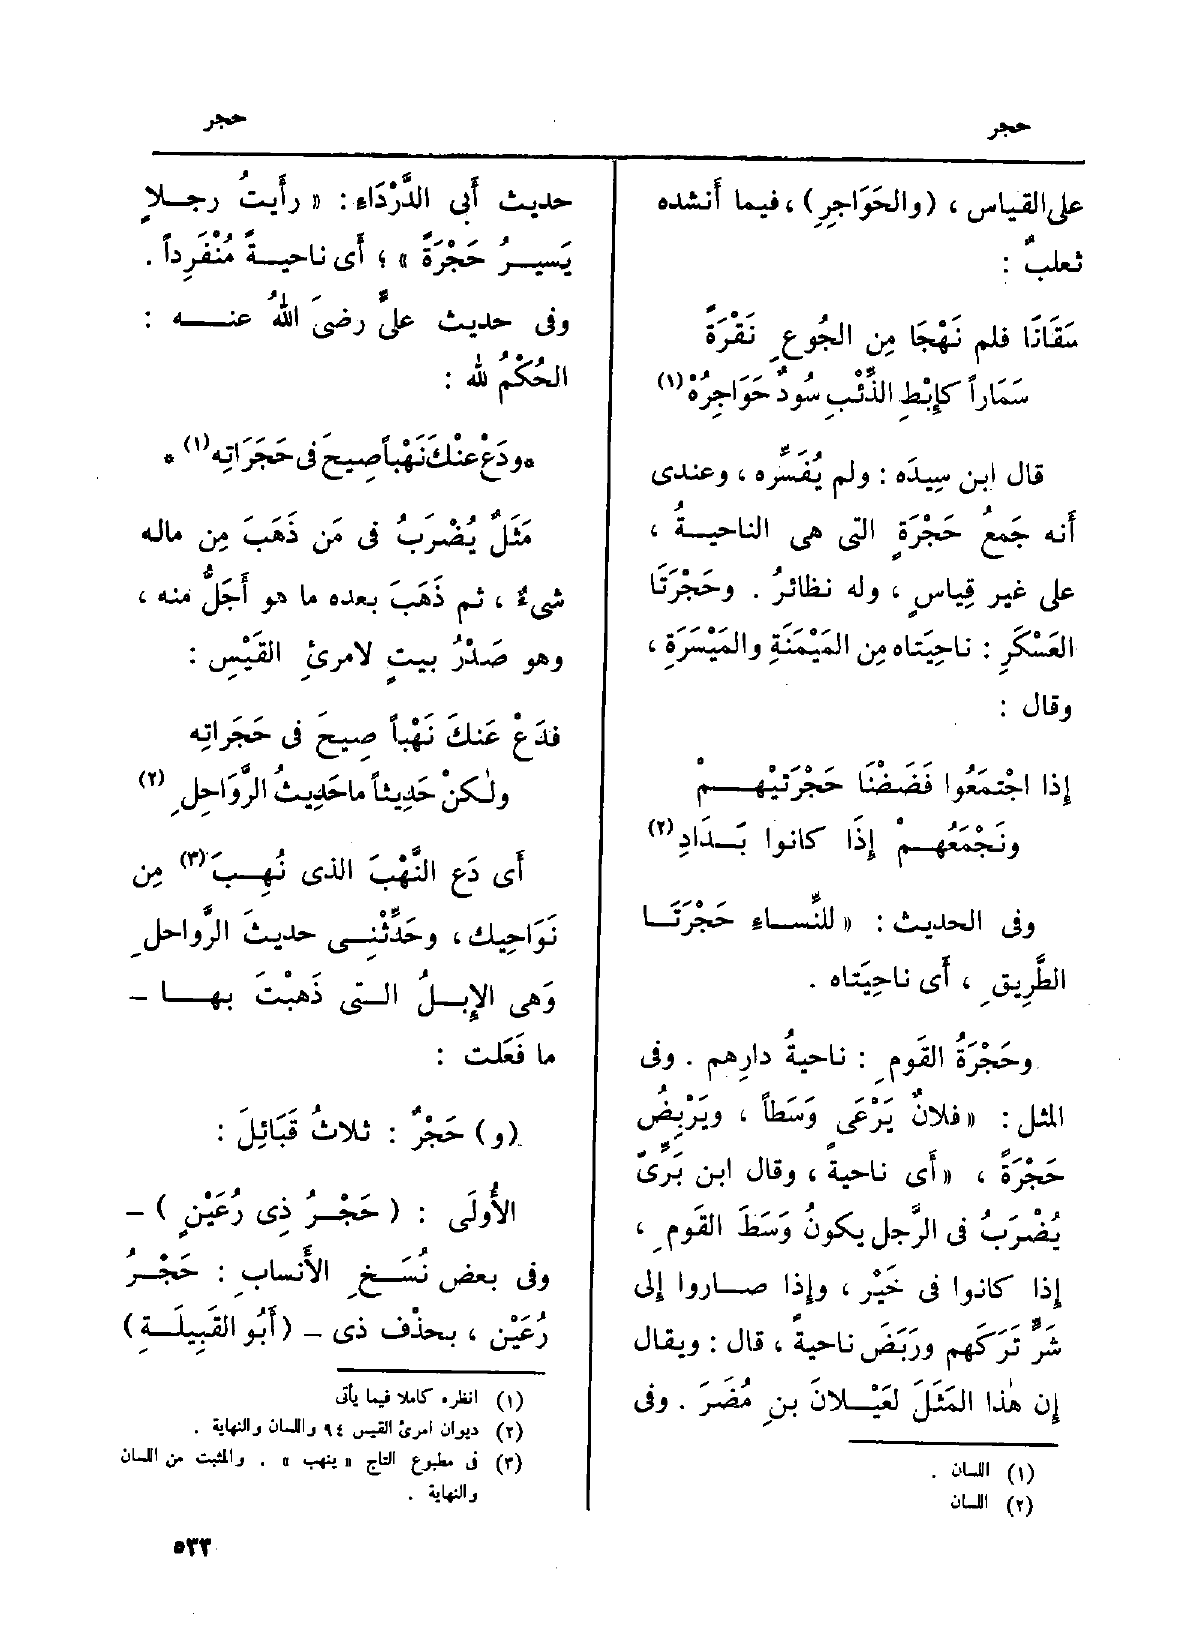 حجر
حجر
على القياس ، (والحَوَاجِرِ) ، فيما أَنشده
ثعلبٌ :
سَقَانَا فلم نَهْجَا مِن الجُوعِ نَقْرَةً
سَمَاراً كإِبْطِ الذِّئْبِ سُودٌ حَوَاجِرُهْ (١)
قال ابن سِيدَه : ولم يُفَسِّره ، وعندى
أَنه جَمعُ حَجْرَةٍ التى هى الناحيةُ ،
على غير قِياسٍ ، وله نظائرُ . وحَجْرَتَا
العَسْكَرِ : ناحِيَتاه مِن المَيْمَنَةِ والمَيْسَرَةِ ،
وقال :
إِذا اجْتَمَعُوا فَضَضْنَا حَجْرَتَيْهِمْ
ونَجْمَعُهمْ إِذَا كانوا بَدَادِ (٢)
وفى الحديث : « للنِّساءِ حَجْرَتَا
الطَّرِيقِ ، أَى ناحِيَتاه .
وحَجْرَةُ القَومِ : ناحيةُ دارِهم . وفى
المثل : « فلانٌ يَرْعَى وَسَطاً ، ويَرْبِضُ
حَجْرَةً ، « أَى ناحيةً ، وقال ابن بَرِّىّ
يُضْرَبُ فى الرَّجل يكونُ وَسَطَ القَومِ ،
إِذا كانوا فى خَيْر ، وإِذا صاروا إِلى
شَرٍّ تَرَكَهم ورَبَضَ ناحيةً ، قال : ويقال
إِن هٰذا المَثَلَ لعَيْلانَ بنِ مُضَرَ . وفى
(١) اللسان .
(٢) اللسان
حديث أَبى الدَّرْدَاءِ: « رأَيتُ رجلاٍ
يَسيرُ حَجْرَةً » ؛ أَى ناحيةً مُنْفَرِداً .
وفى حديث علىٍّ رضىَ اللهُ عنه :
الحُكْمُ لله :
*ودَعْ عنْكَ نَهْباً صِيحَ فى حَجَرَاتِه (١) *
مَثَلٌ يُضْرَبُ فى مَن ذَهَبَ مِن ماله
شىءٌ ، ثم ذَهَبَ بعده ما هو أَجَلُّ منه ،
وهو صَدْرُ بيتٍ لامرئِ القَيْسِ :
فدَعْ عَنكَ نَهْباً صِيحَ فى حَجَراتِه
ولٰكنْ حَدِيثاً ما حَدِيثُ الرَّوَاحِلِ (٢)
أَى دَع النَّهْبَ الذى نُهِبَ (٣) مِن
نَوَاحِيك ، وحَدِّثْنِى حديثَ الرَّواحلِ
وَهى الإِبلُ التى ذَهبْتَ بها –
ما فَعَلت :
(و) حَجْرٌ : ثلاثُ قَبَائِلَ :
الأُولَى : (حَجْرُ ذِى رُعَيْنٍ) –
وفى بعض نُسَخِ الأَنسابِ : حَجْرُ
رُعَيْن ، بحذْف ذى – (أَبُو القَبِيلَةِ)
(١) انظره كاملا فيما يأتى
(٢) ديوان امرئ القيس ٩٤ واللسان والنهاية .
(٣) فى مطبوع التاج « ينهب » . والمثبت من اللسان
والنهاية .
٥٣٣